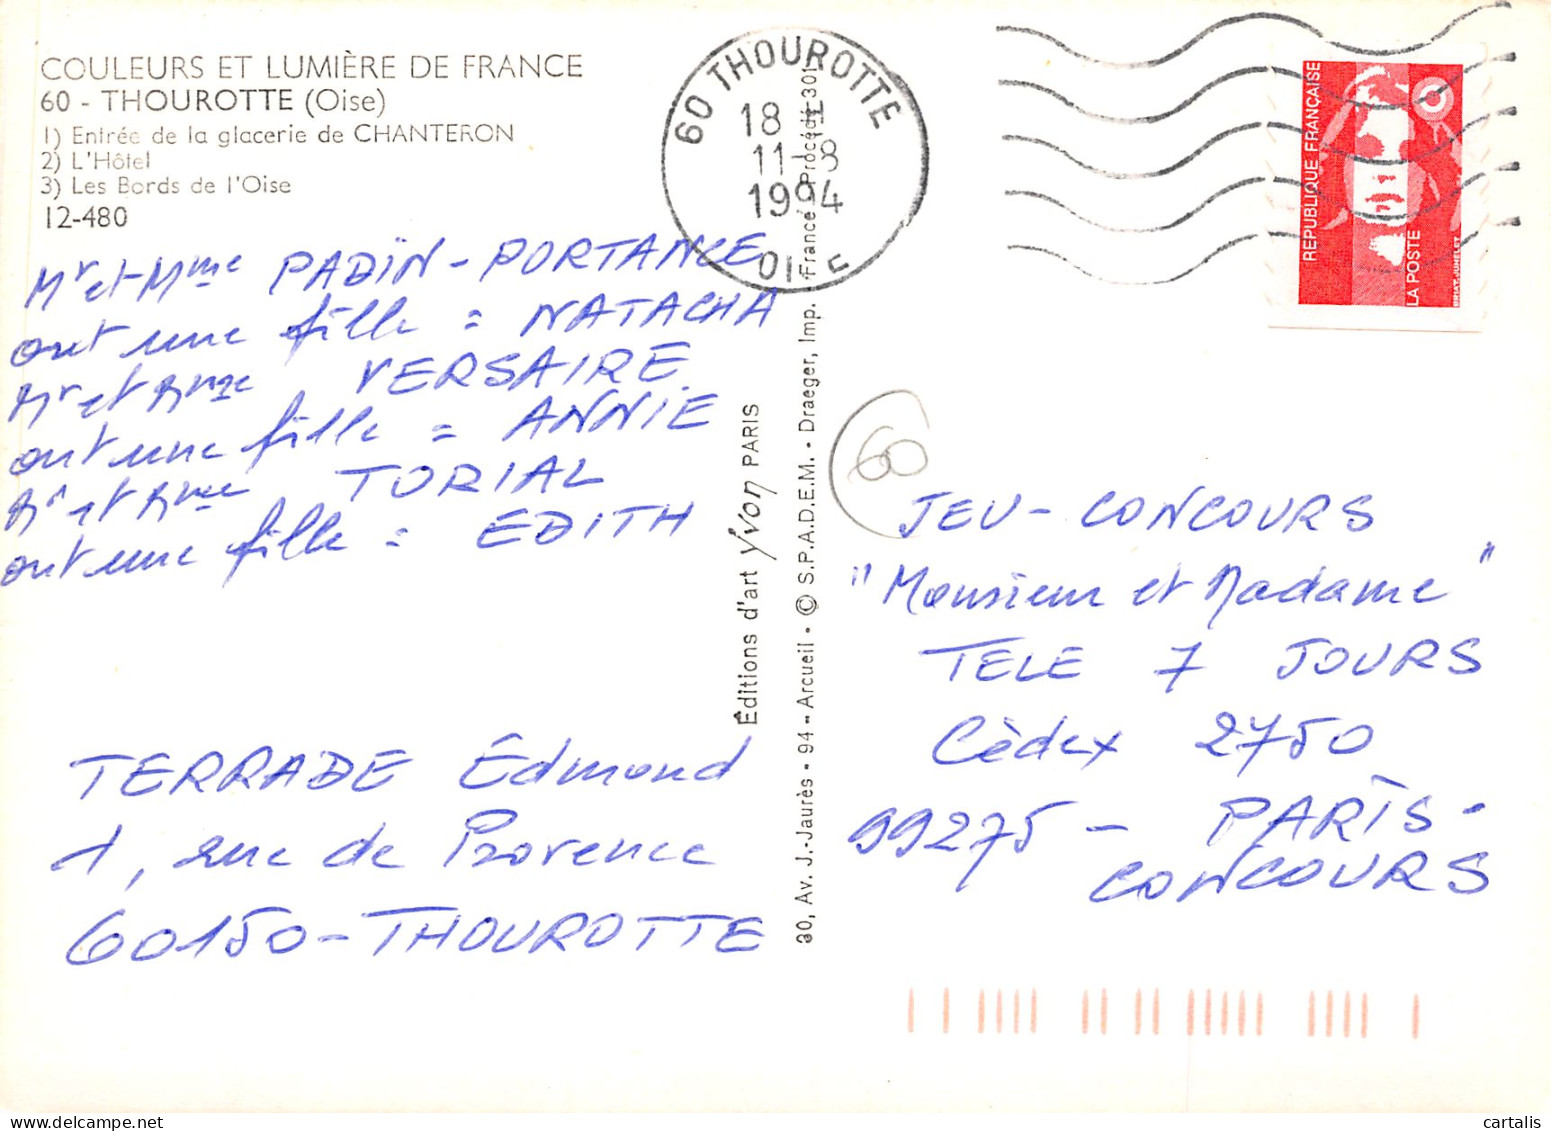 COULEURS ET LUMIÈRE DE FRANCE
60 - THOUROTTE (Oise)
1) Entrée de la glacerie de CHANTERON
2) L'Hôtel
3) Les Bords de l'Oise
12-480
Mr et Mme PADÏN-PORTANCE
ont une fille = NATACHA
Mr et Mme VERSAIRE
ont une fille = ANNIE
Mr et Mme TORIAL
ont une fille = EDITH
TERRADE Edmond
1, rue de Provence
60150-THOUROTTE
Éditions d'art Yvon PARIS
30, Av. J.-Jaurès - 94 - Arcueil - © S.P.A.D.E.M. - Draeger, Imp. France Procédé 301
60 THOUROTTE
18 H
11-8
1994
OISE
RÉPUBLIQUE FRANÇAISE
LA POSTE
BRIAT-JUMELET
60
JEU-CONCOURS
"Monsieur et Madame"
TELE 7 JOURS
Cèdex 2750
99275 - PARIS-
CONCOURS
© cartalis